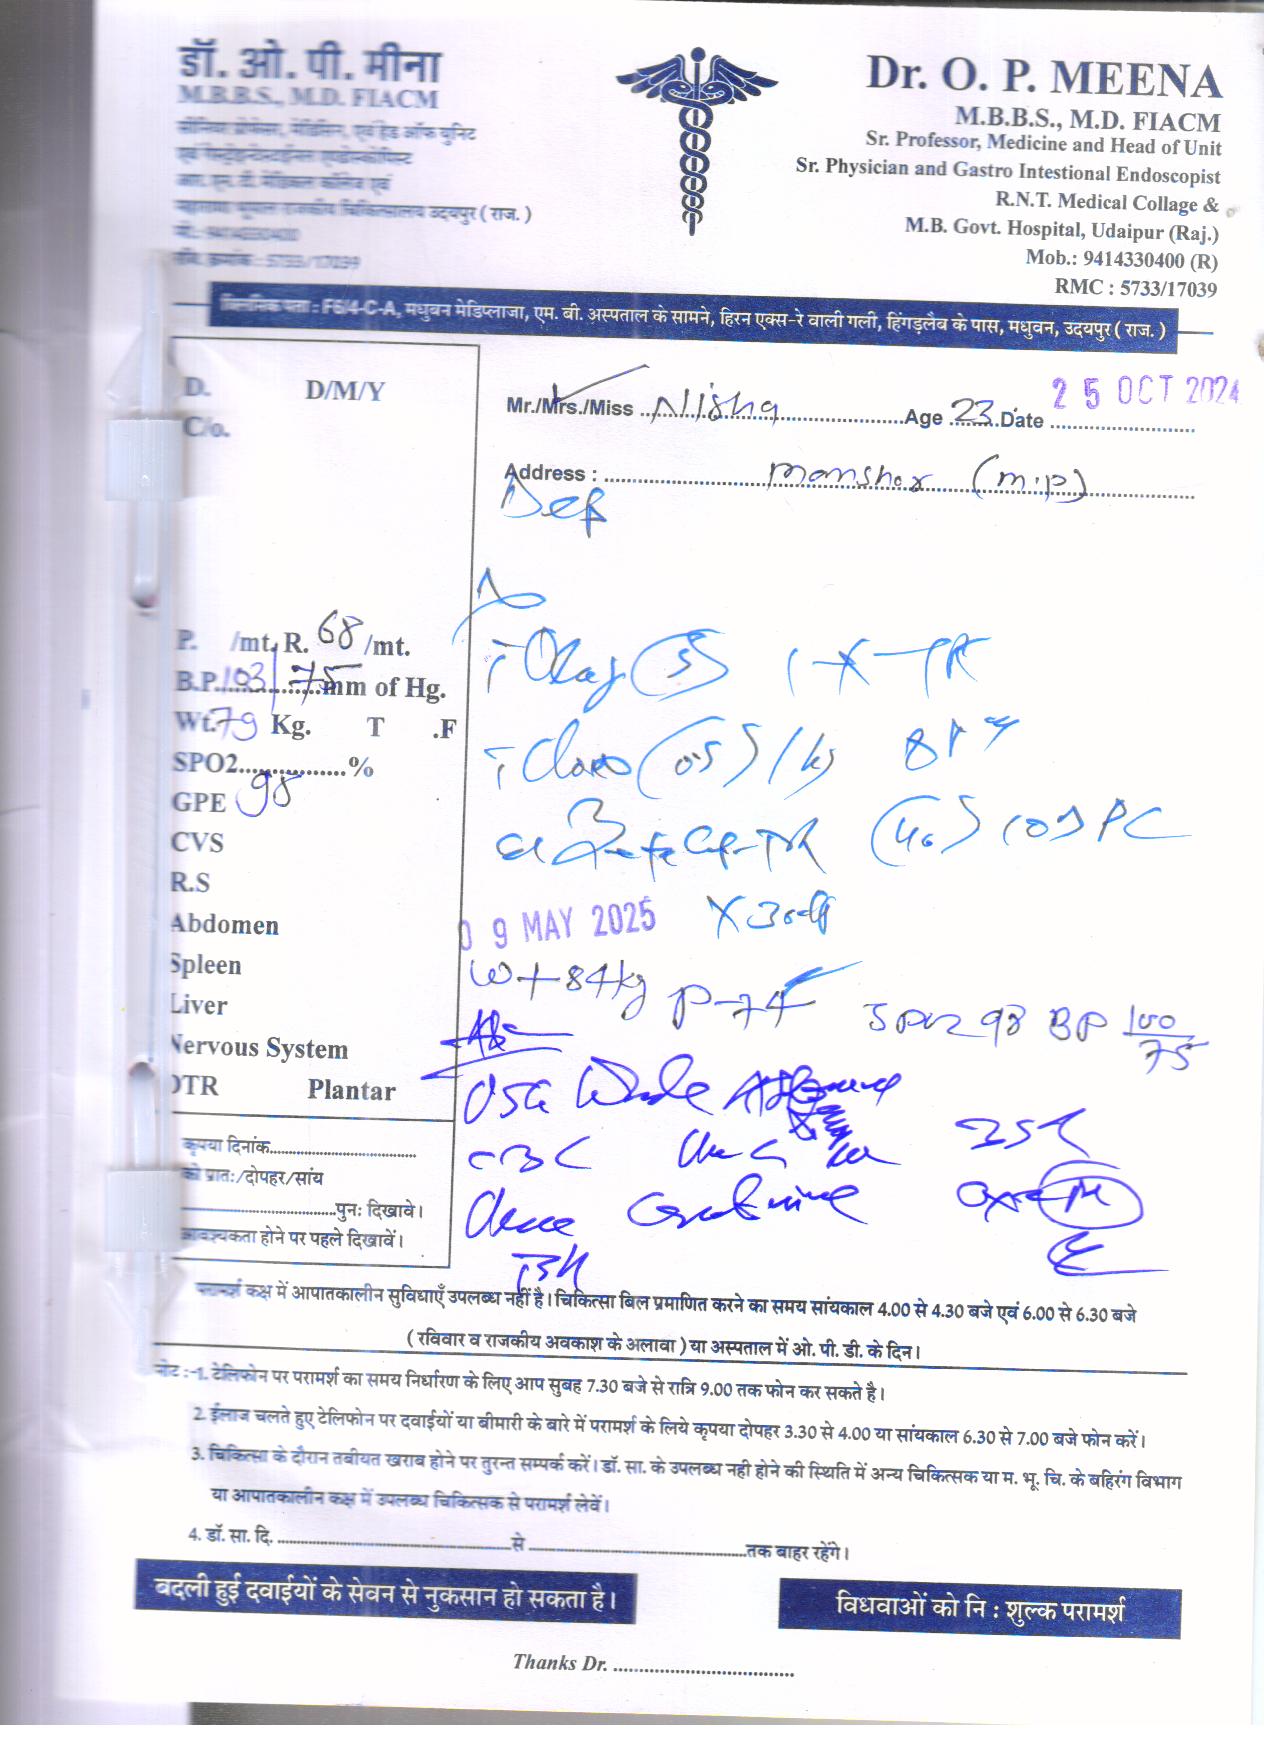 डॉ. ओ. पी. मीना
M.B.B.S., M.D. FIACM
सीनियर प्रोफेसर, मेडिसिन, एवं हेड ऑफ यूनिट
एवं गैस्ट्रोइन्टेस्टाईनल एण्डोस्कोपिस्ट
आर. एन. टी. मेडिकल कॉलेज एवं
महाराणा भूपाल राजकीय चिकित्सालय उदयपुर ( राज. )
मो. : 9414330400
रजि. क्रमांक : 5733/17039
Dr. O. P. MEENA
M.B.B.S., M.D. FIACM
Sr. Professor, Medicine and Head of Unit
Sr. Physician and Gastro Intestional Endoscopist
R.N.T. Medical Collage &
M.B. Govt. Hospital, Udaipur (Raj.)
Mob.: 9414330400 (R)
RMC : 5733/17039
क्लिनिक पता : F6/4-C-A, मधुवन मेडिप्लाजा, एम. बी. अस्पताल के सामने, हिरन एक्स-रे वाली गली, हिंगड़लैब के पास, मधुवन, उदयपुर ( राज. )
D. D/M/Y
C/o.
Mr./Mrs./Miss Nisha Age 23 Date 25 OCT 2024
Address : (m.p)
P. /mt. R. 68 /mt.
B.P. 103/75 mm of Hg.
Wt. 79 Kg. T .F
SPO2 %
GPE 98
CVS
R.S
Abdomen
Spleen
Liver
Nervous System
DTR Plantar
1-X-
(0.5)
(40) PC
X 30
09 MAY 2025
Wt 84kg P-74 SPO2 98 BP 100/75
USG Whole Abdomen
CBC
Creatinine
TSH
कृपया दिनांक
को प्रातः/दोपहर/सांय
पुनः दिखावे।
आवश्यकता होने पर पहले दिखावें।
परामर्श कक्ष में आपातकालीन सुविधाएँ उपलब्ध नहीं है। चिकित्सा बिल प्रमाणित करने का समय सांयकाल 4.00 से 4.30 बजे एवं 6.00 से 6.30 बजे
( रविवार व राजकीय अवकाश के अलावा ) या अस्पताल में ओ. पी. डी. के दिन।
नोट :-1. टेलिफोन पर परामर्श का समय निर्धारण के लिए आप सुबह 7.30 बजे से रात्रि 9.00 तक फोन कर सकते है।
2. ईलाज चलते हुए टेलिफोन पर दवाईयों या बीमारी के बारे में परामर्श के लिये कृपया दोपहर 3.30 से 4.00 या सांयकाल 6.30 से 7.00 बजे फोन करें।
3. चिकित्सा के दौरान तबीयत खराब होने पर तुरन्त सम्पर्क करें। डॉ. सा. के उपलब्ध नही होने की स्थिति में अन्य चिकित्सक या म. भू. चि. के बहिरंग विभाग
या आपातकालीन कक्ष में उपलब्ध चिकित्सक से परामर्श लेवें।
4. डॉ. सा. दि. से तक बाहर रहेंगे।
बदली हुई दवाईयों के सेवन से नुकसान हो सकता है।
विधवाओं को नि : शुल्क परामर्श
Thanks Dr.